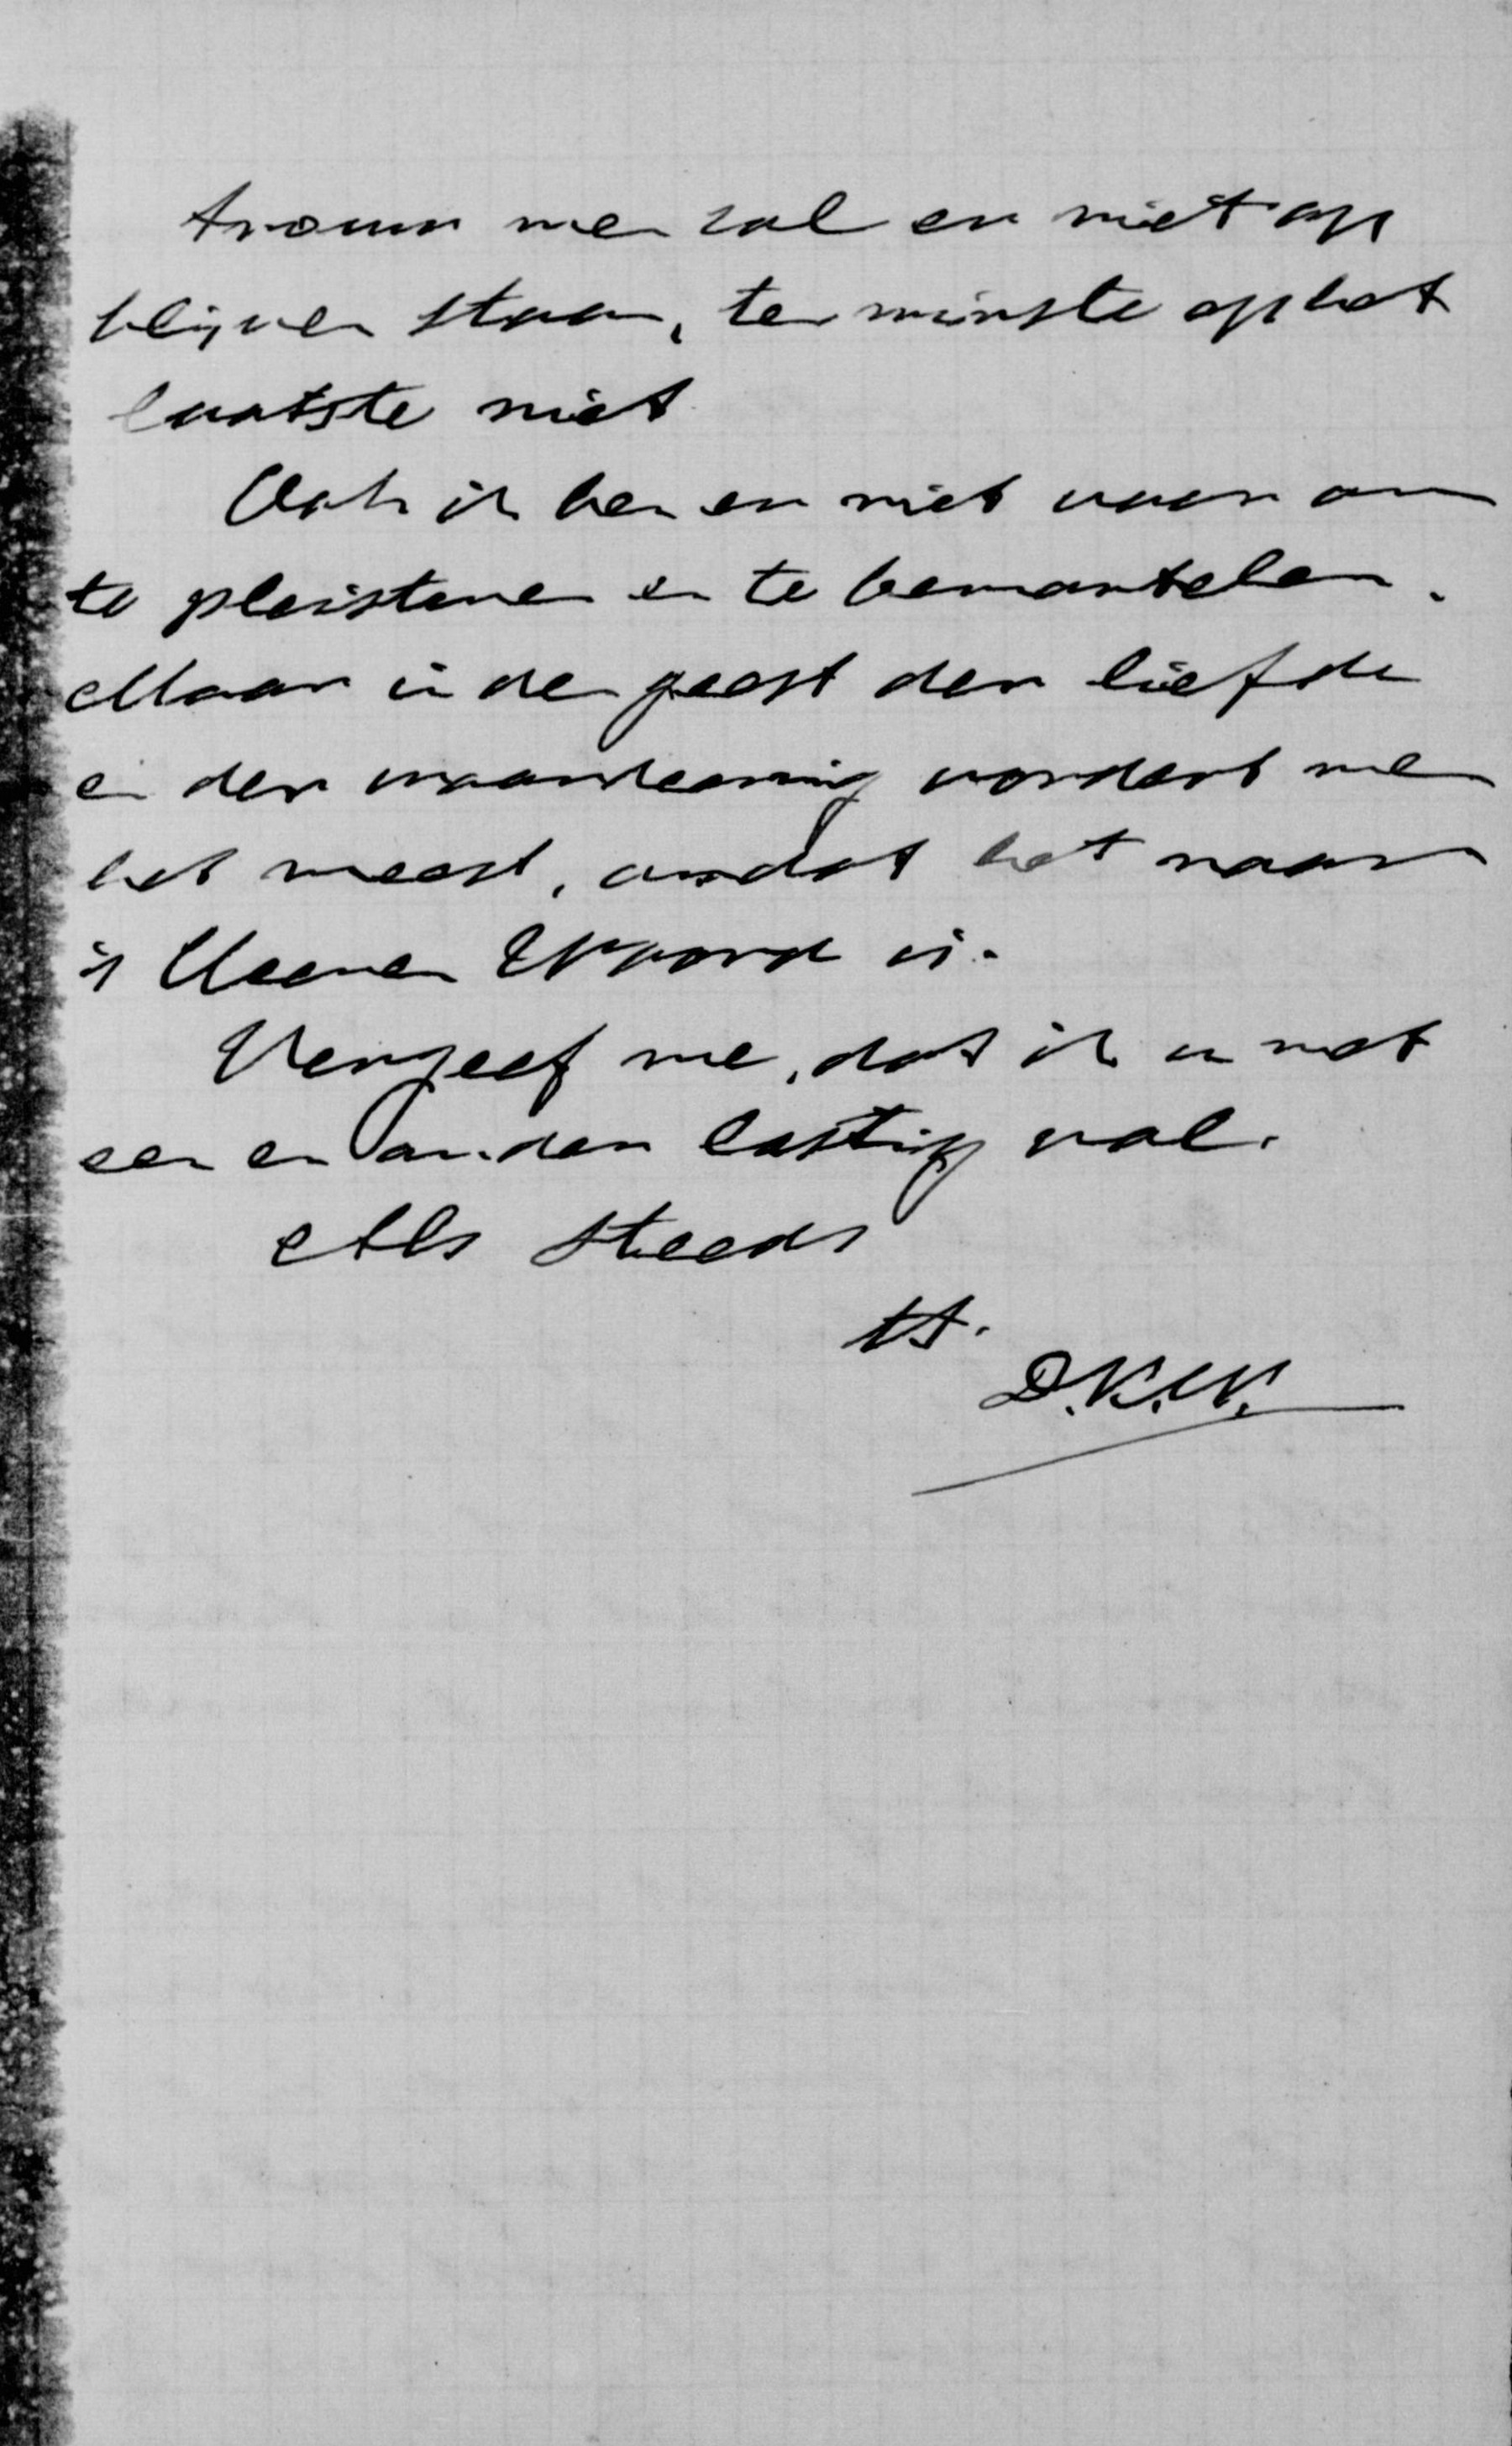 trouw men zal er niet op
blijven staan, ten minste op het
laatste niet
Ook ik ben er niet voor om
te pleisteren en te bemantelen.
Maar in den geest der liefde
en der waardeering vordert men
het meest, omdat het naar
's Heeren Woord is.
Vergeef me, dat ik u met
een en ander lastig val.
Als steeds
tt.
D.K.W.